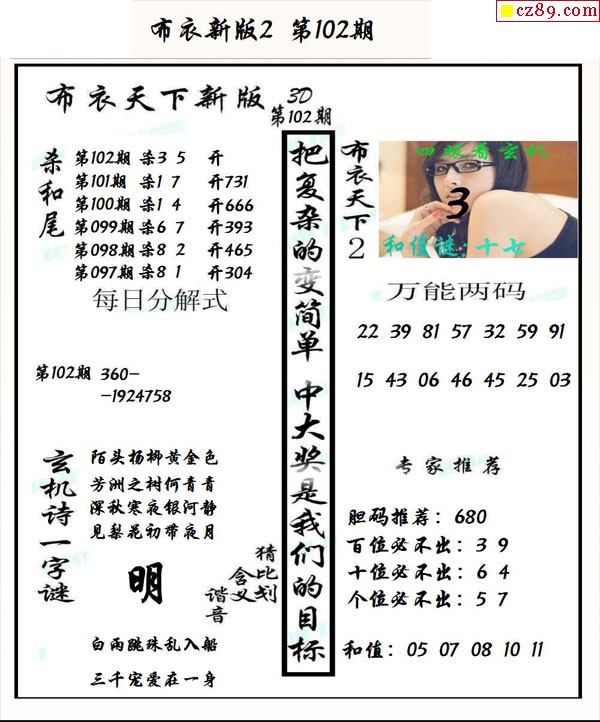 cz89.com
布衣新版2 第102期
布衣天下新版 3D
第102期
杀和尾
第102期 杀3 5 开
第101期 杀1 7 开731
第100期 杀1 4 开666
第099期 杀6 7 开393
第098期 杀8 2 开465
第097期 杀8 1 开304
每日分解式
第102期 360-
-1924758
玄机诗一字谜
陌头杨柳黄金色
芳洲之树何青青
深秋寒夜银河静
见梨花初带夜月
明
猜比划
含义
谐音
白雨跳珠乱入船
三千宠爱在一身
把复杂的变简单 中大奖是我们的目标
布衣天下2
四眼看玄机
3
和值谜:十七
万能两码
22 39 81 57 32 59 91
15 43 06 46 45 25 03
专家推荐
胆码推荐：680
百位必不出：3 9
十位必不出：6 4
个位必不出：5 7
和值：05 07 08 10 11